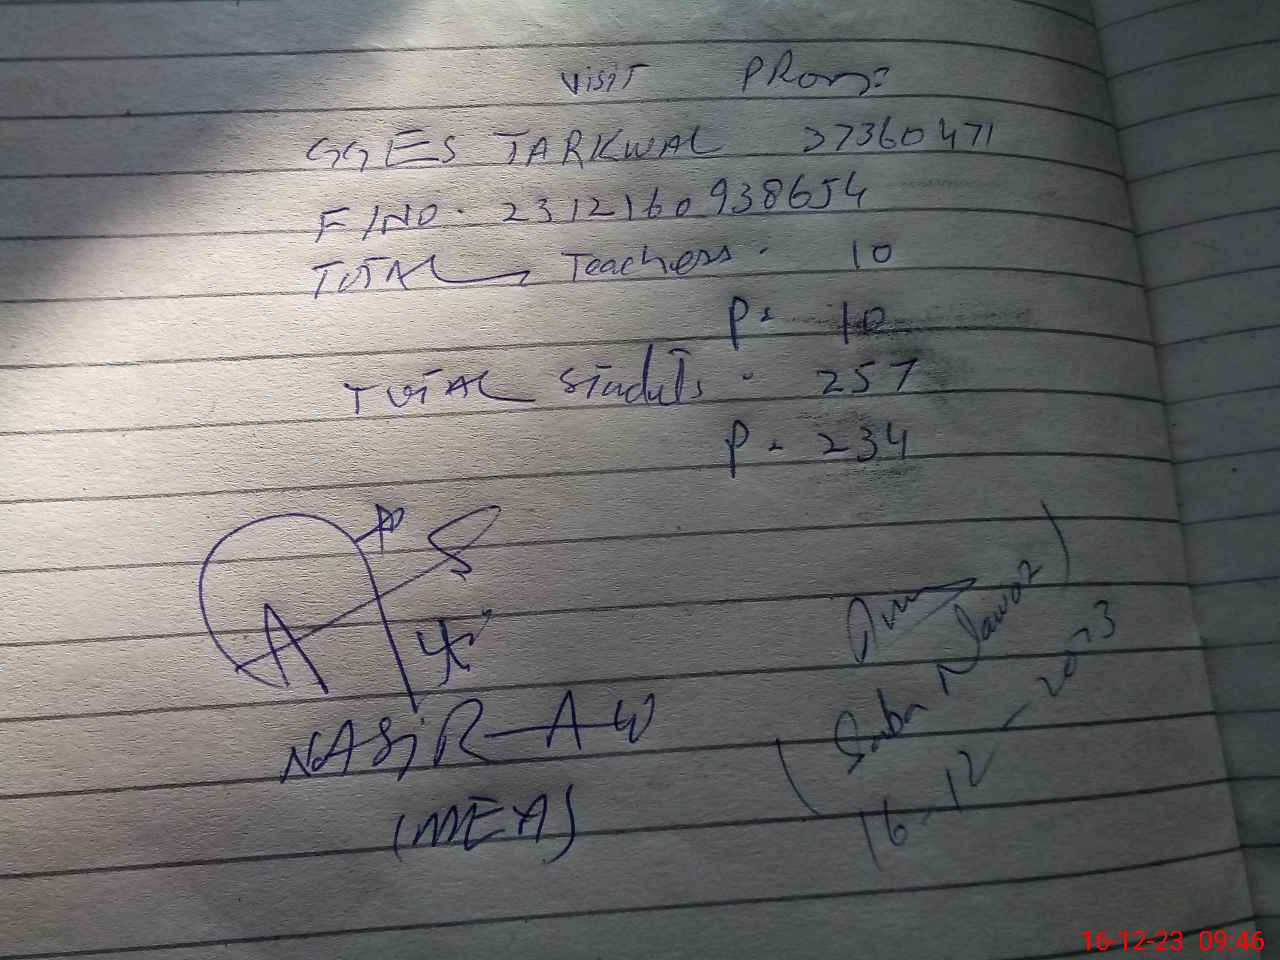 VISIT PRoof
GGES TARKWAL 37360471
F/NO. 2312160938654
TOTAL Teachers. 10
P= 10
TOTAL Studets. 257
P= 234
NASiR-Ali
(MEA)
(Saba Nawaz)
16-12-2023
16-12-23 09:46